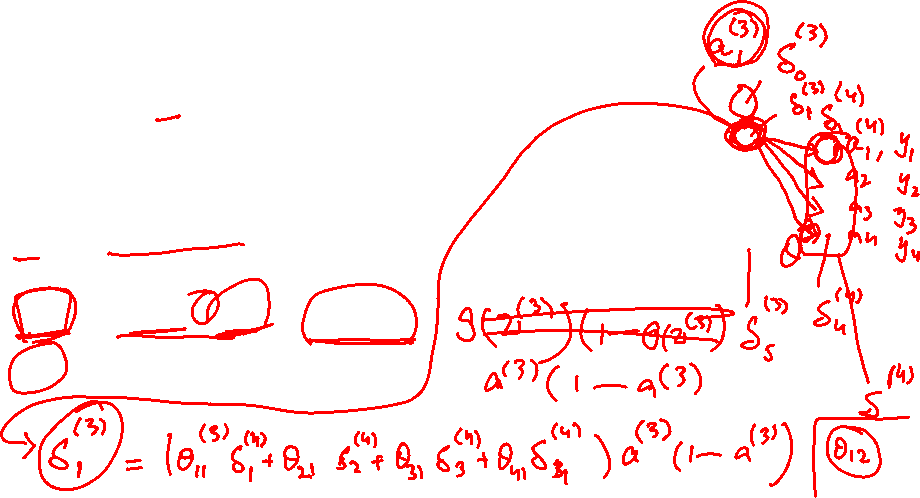 a₁⁽³⁾
δ₀⁽³⁾
δ₁⁽³⁾ δ₁⁽⁴⁾
a₁⁽⁴⁾, y₁
a₂ y₂
a₃ y₃
a₄ y₄
g(z⁽³⁾)(1 − g(z⁽³⁾)) δ₅⁽³⁾ δ₄⁽⁴⁾
a⁽³⁾(1 − a⁽³⁾)
δ⁽⁴⁾
δ₁⁽³⁾ = (θ₁₁⁽³⁾ δ₁⁽⁴⁾ + θ₂₁ δ₂⁽⁴⁾ + θ₃₁ δ₃⁽⁴⁾ + θ₄₁ δ₄⁽⁴⁾) a⁽³⁾ (1 − a⁽³⁾) θ₁₂